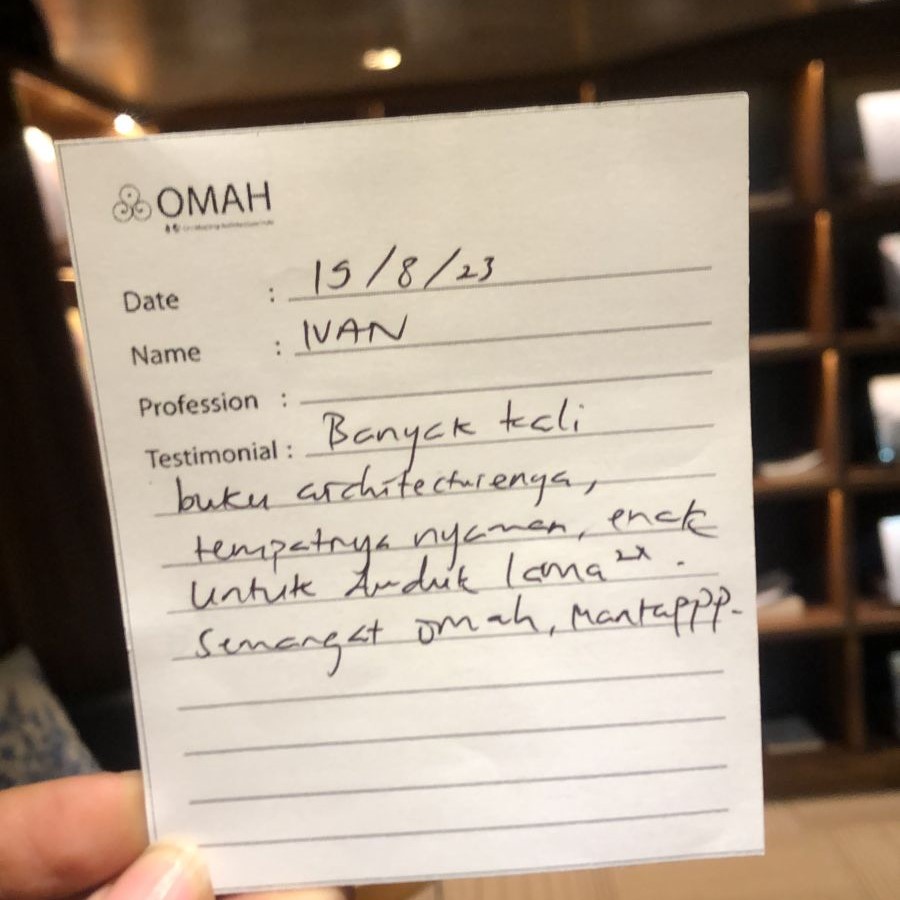 OMAH
Date : 15/8/23
Name : IVAN
Profession :
Testimonial : Banyak kali
buku architecturenya,
tempatnya nyaman, enak
untuk duduk lama2x.
Semangat omah, Mantappp-